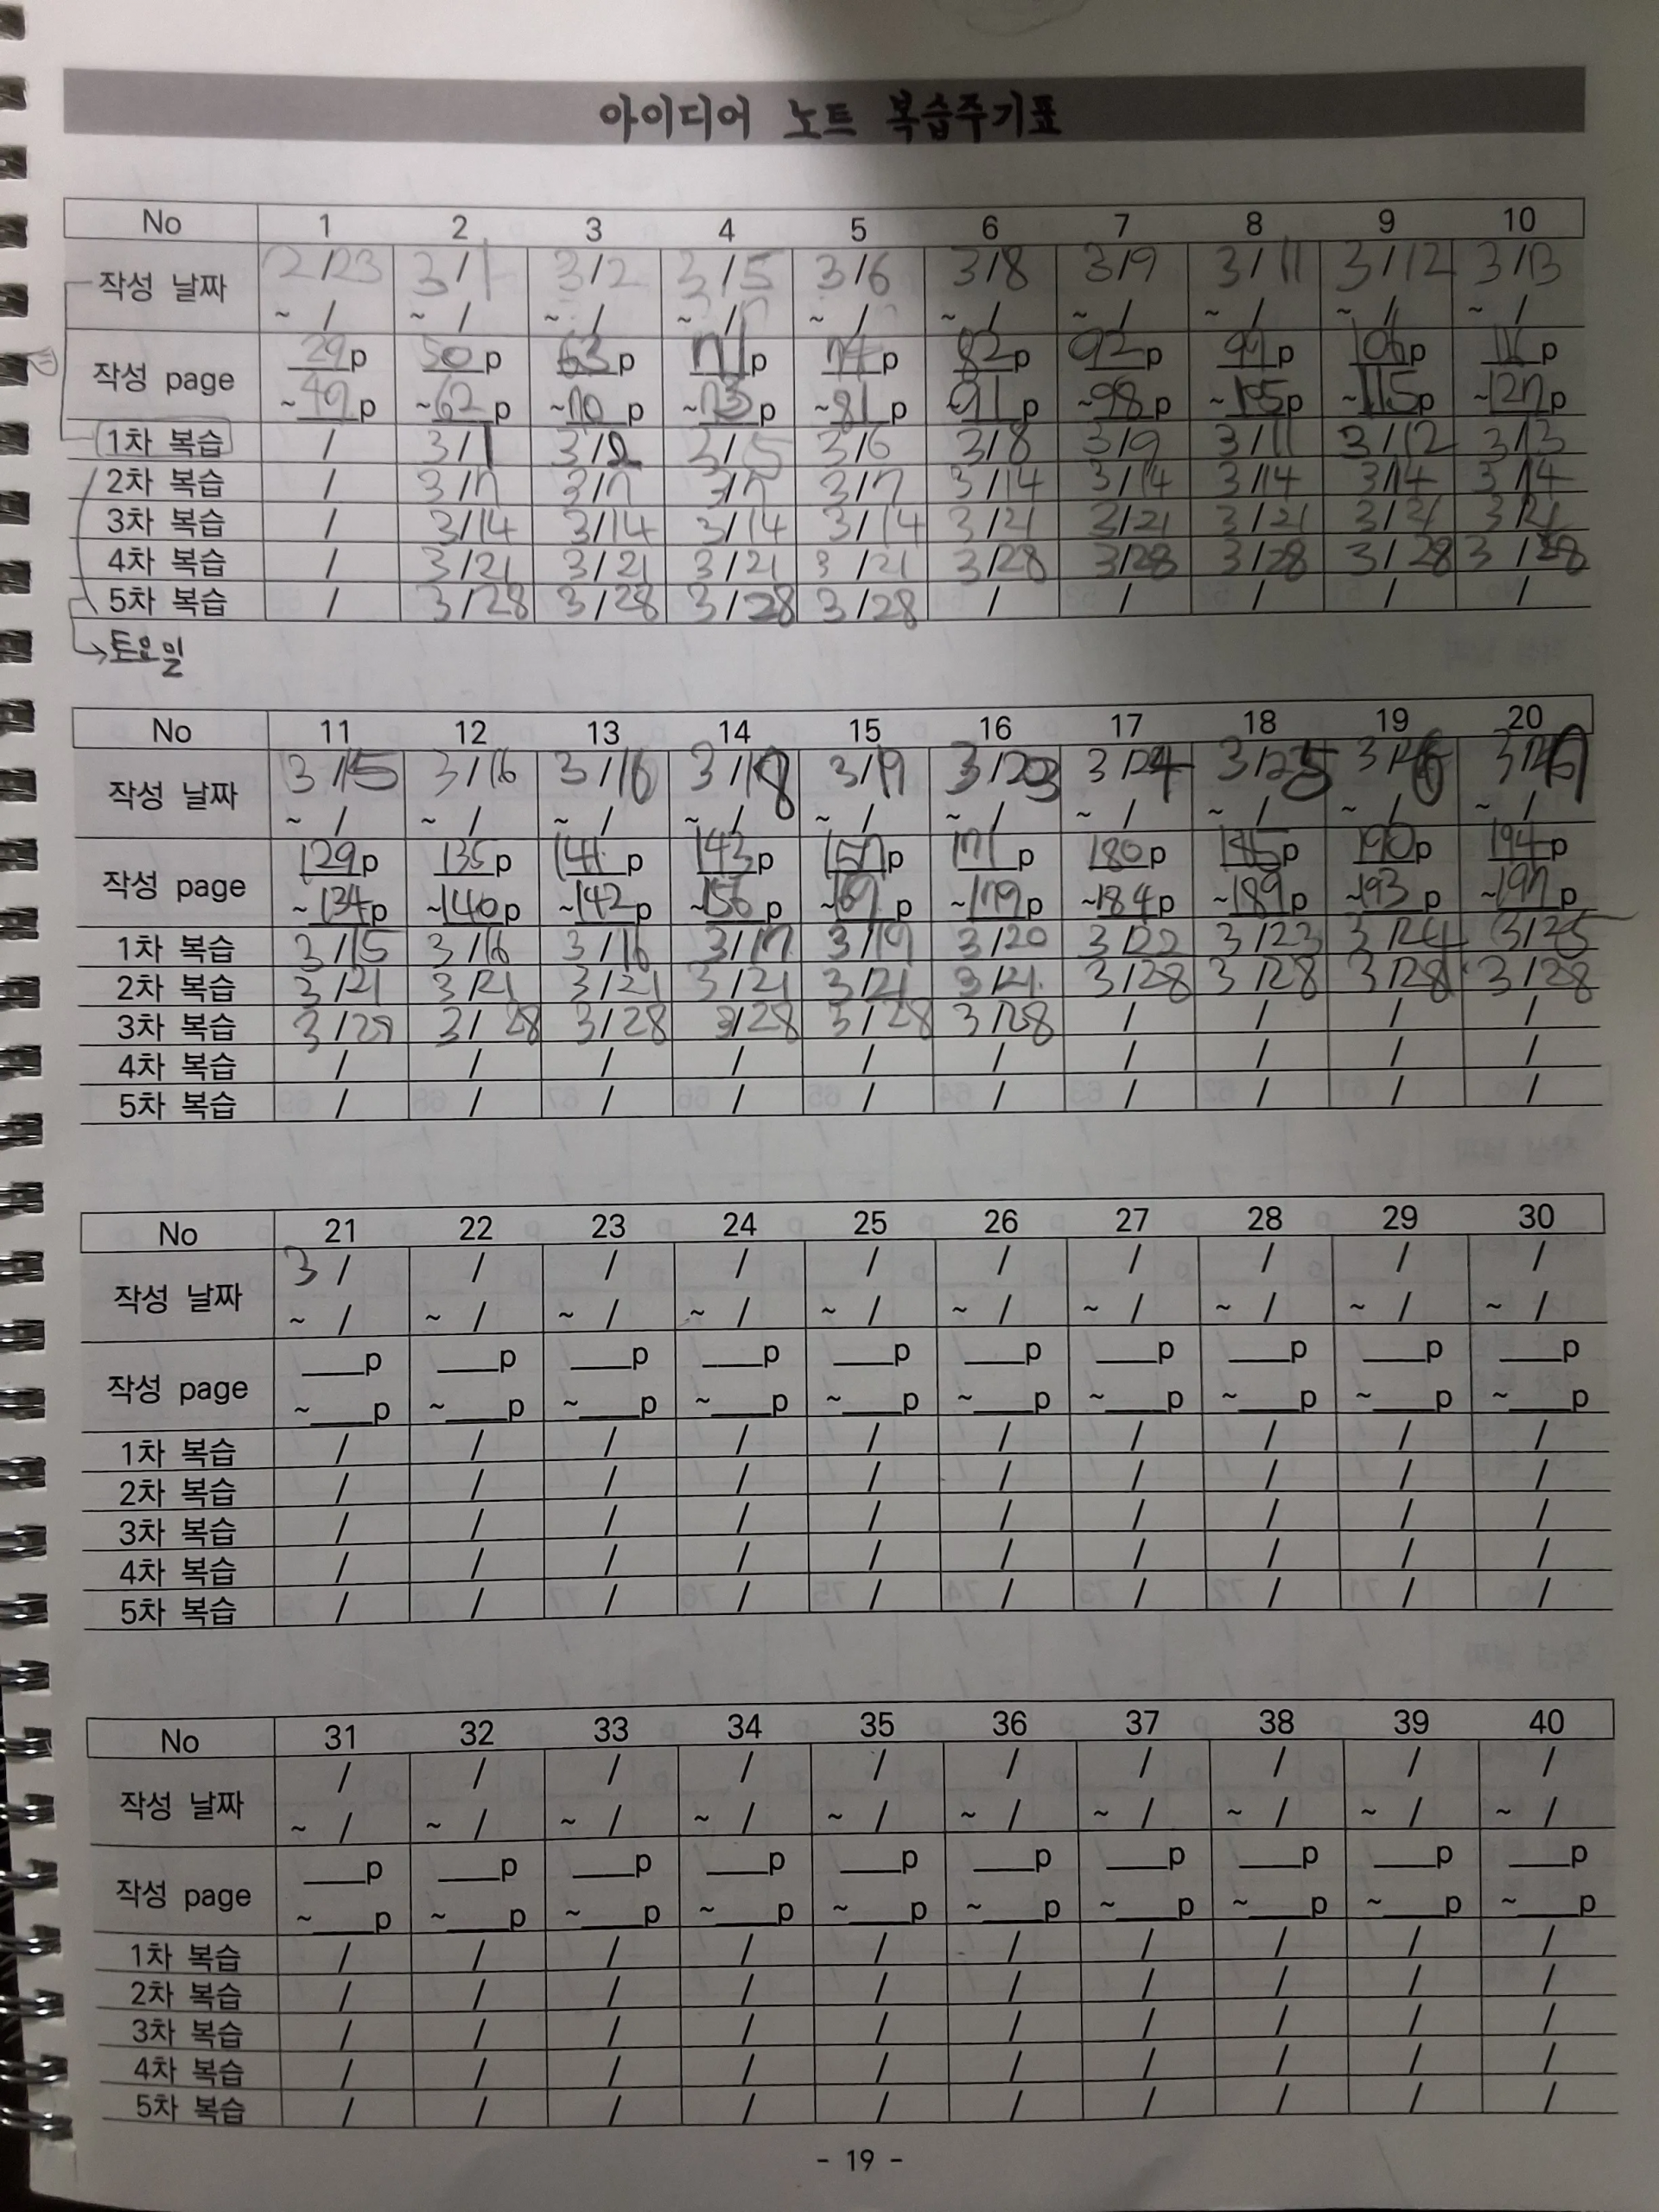 아이디어 노트 복습주기표
No 1 2 3 4 5 6 7 8 9 10
작성 날짜 2/23 3/1 3/2 3/5 3/6 3/8 3/9 3/11 3/12 3/13
~ / ~ / ~ / ~ / ~ / ~ / ~ / ~ / ~ / ~ /
작성 page 29p 50p 63p 71p 74p 82p 92p 99p 106p 116p
~49p ~62p ~70p ~73p ~81p 91p ~98p ~105p ~115p ~127p
1차 복습 / 3/1 3/2 3/5 3/6 3/8 3/9 3/11 3/12 3/13
2차 복습 / 3/7 3/7 3/7 3/7 3/14 3/14 3/14 3/14 3/14
3차 복습 / 3/14 3/14 3/14 3/14 3/21 3/21 3/21 3/21 3/21
4차 복습 / 3/21 3/21 3/21 3/21 3/28 3/28 3/28 3/28 3/28
5차 복습 / 3/28 3/28 3/28 3/28 / / / / /
→토요일
No 11 12 13 14 15 16 17 18 19 20
작성 날짜 3/15 3/16 3/16 3/18 3/19 3/23 3/24 3/25 3/26
~ / ~ / ~ / ~ / ~ / ~ / ~ / ~ / ~ / ~ /
작성 page 129p 135p 141p 143p 157p 171p 180p 185p 190p 194p
~134p ~140p ~142p ~156p ~169p ~179p ~184p ~189p ~193p ~197p
1차 복습 3/15 3/16 3/16 3/17 3/19 3/20 3/22 3/23 3/24 3/25
2차 복습 3/21 3/21 3/21 3/21 3/21 3/21 3/28 3/28 3/28 3/28
3차 복습 3/29 3/28 3/28 3/28 3/28 3/28 / / / /
4차 복습 / / / / / / / / / /
5차 복습 / / / / / / / / / /
No 21 22 23 24 25 26 27 28 29 30
작성 날짜 3/ / / / / / / / / /
~ / ~ / ~ / ~ / ~ / ~ / ~ / ~ / ~ / ~ /
작성 page ___p ___p ___p ___p ___p ___p ___p ___p ___p ___p
~___p ~___p ~___p ~___p ~___p ~___p ~___p ~___p ~___p ~___p
1차 복습 / / / / / / / / / /
2차 복습 / / / / / / / / / /
3차 복습 / / / / / / / / / /
4차 복습 / / / / / / / / / /
5차 복습 / / / / / / / / / /
No 31 32 33 34 35 36 37 38 39 40
작성 날짜 / / / / / / / / / /
~ / ~ / ~ / ~ / ~ / ~ / ~ / ~ / ~ / ~ /
작성 page ___p ___p ___p ___p ___p ___p ___p ___p ___p ___p
~___p ~___p ~___p ~___p ~___p ~___p ~___p ~___p ~___p ~___p
1차 복습 / / / / / / / / / /
2차 복습 / / / / / / / / / /
3차 복습 / / / / / / / / / /
4차 복습 / / / / / / / / / /
5차 복습 / / / / / / / / / /
- 19 -